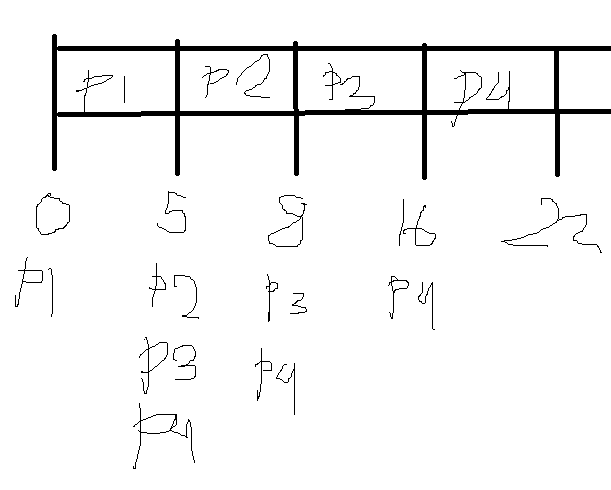 P1 P2 P3 P4
0 5 8 16 22
P1 P2 P3 P4
P3 P4
P4